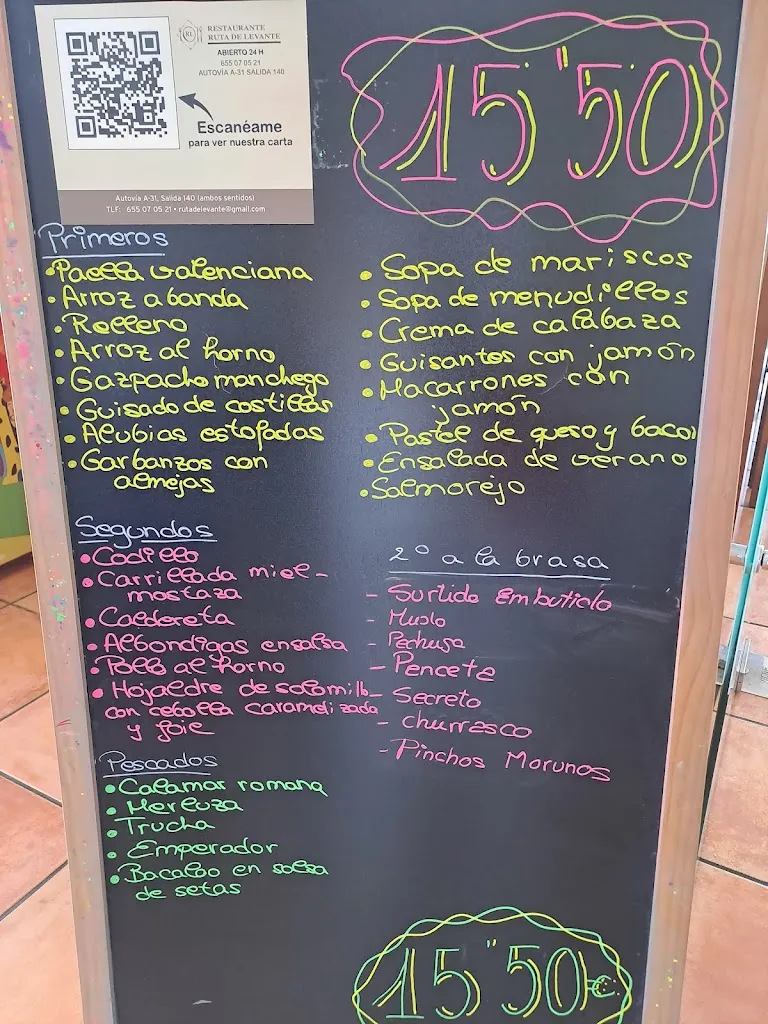 RESTAURANTE
RUTA DE LEVANTE
ABIERTO 24 H
655 07 05 21
AUTOVÍA A-31 SALIDA 140
Escanéame
para ver nuestra carta
Autovía A-31, Salida 140 (ambos sentidos)
TLF: 655 07 05 21 • rutadelevante@gmail.com
15'50
Primeros
•Paella valenciana
•Arroz a banda
•Relleno
•Arroz al horno
•Gazpacho manchego
•Guisado de costillas
•Alubias estofadas
•Garbanzos con
almejas
•Sopa de mariscos
•Sopa de menudillos
•Crema de calabaza
•Guisantes con jamón
•Macarrones con
jamón
•Pastel de queso y bacon
•Ensalada de verano
•Salmorejo
Segundos
•Codillo
•Carrillada miel-
mostaza
•Caldereta
•Albondigas en salsa
•Pollo al horno
•Hojaldre de solomillo
con cebolla caramelizada
y foie
2º a la brasa
- Surtido Embutido
- Muslo
- Pechuga
- Panceta
- Secreto
- Churrasco
- Pinchos Morunos
Pescados
•Calamar romana
•Merluza
•Trucha
•Emperador
•Bacalao en salsa
de setas
15"50€